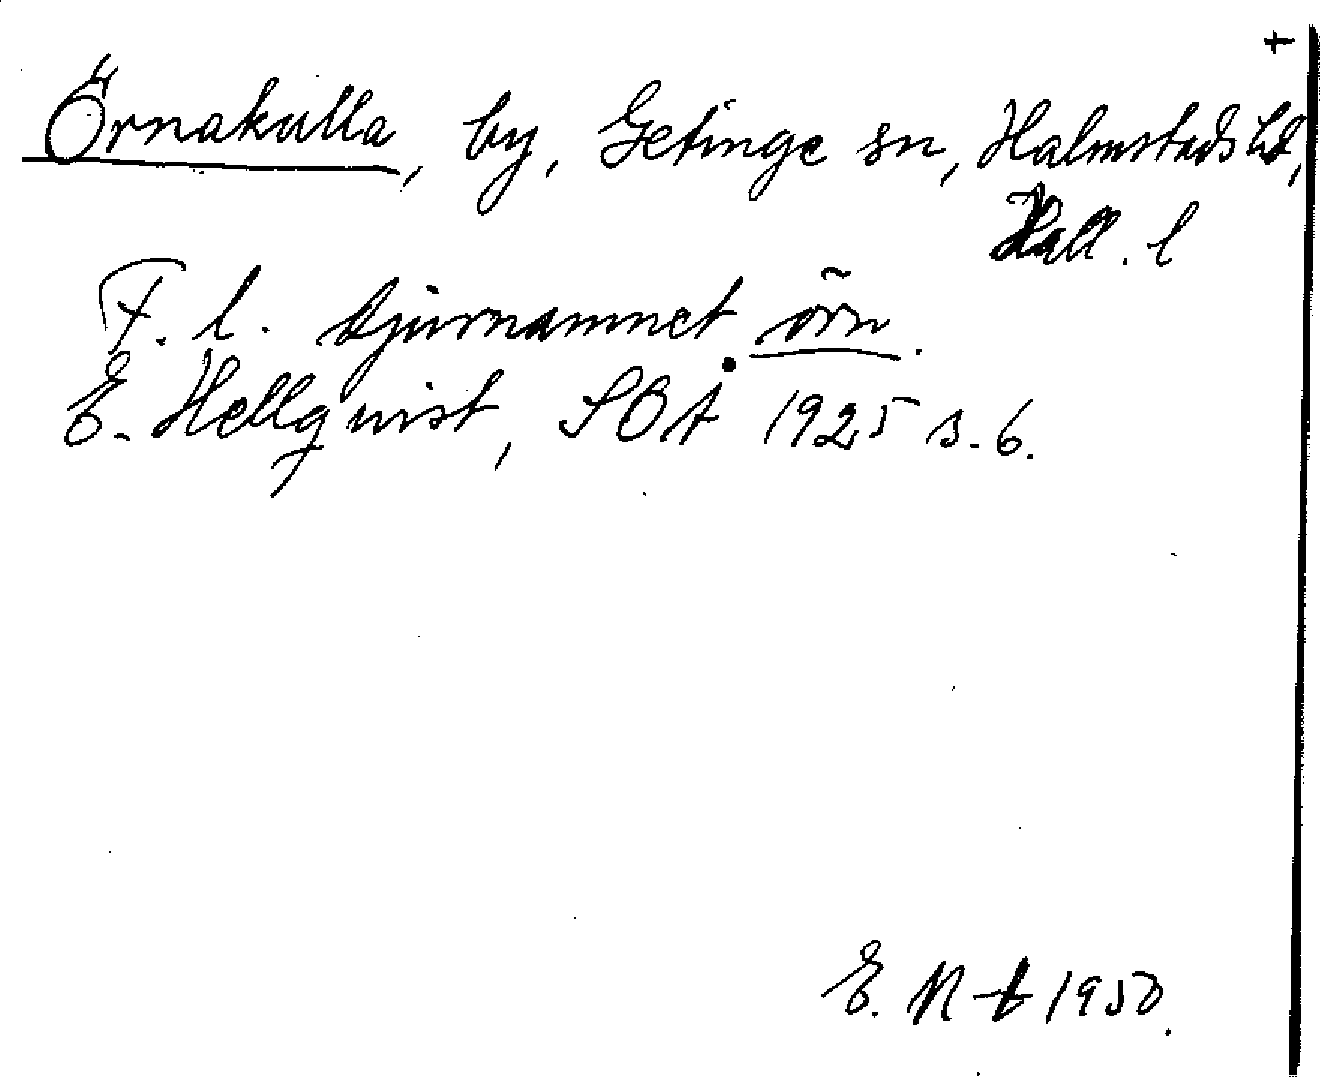 +
Örnakulla, by, Getinge sn, Halmstads hd,
Hall. l
F. l. djurnamnet örn.
E. Hellquist, SOÅ 1925 s. 6.
E. N-t 1950.